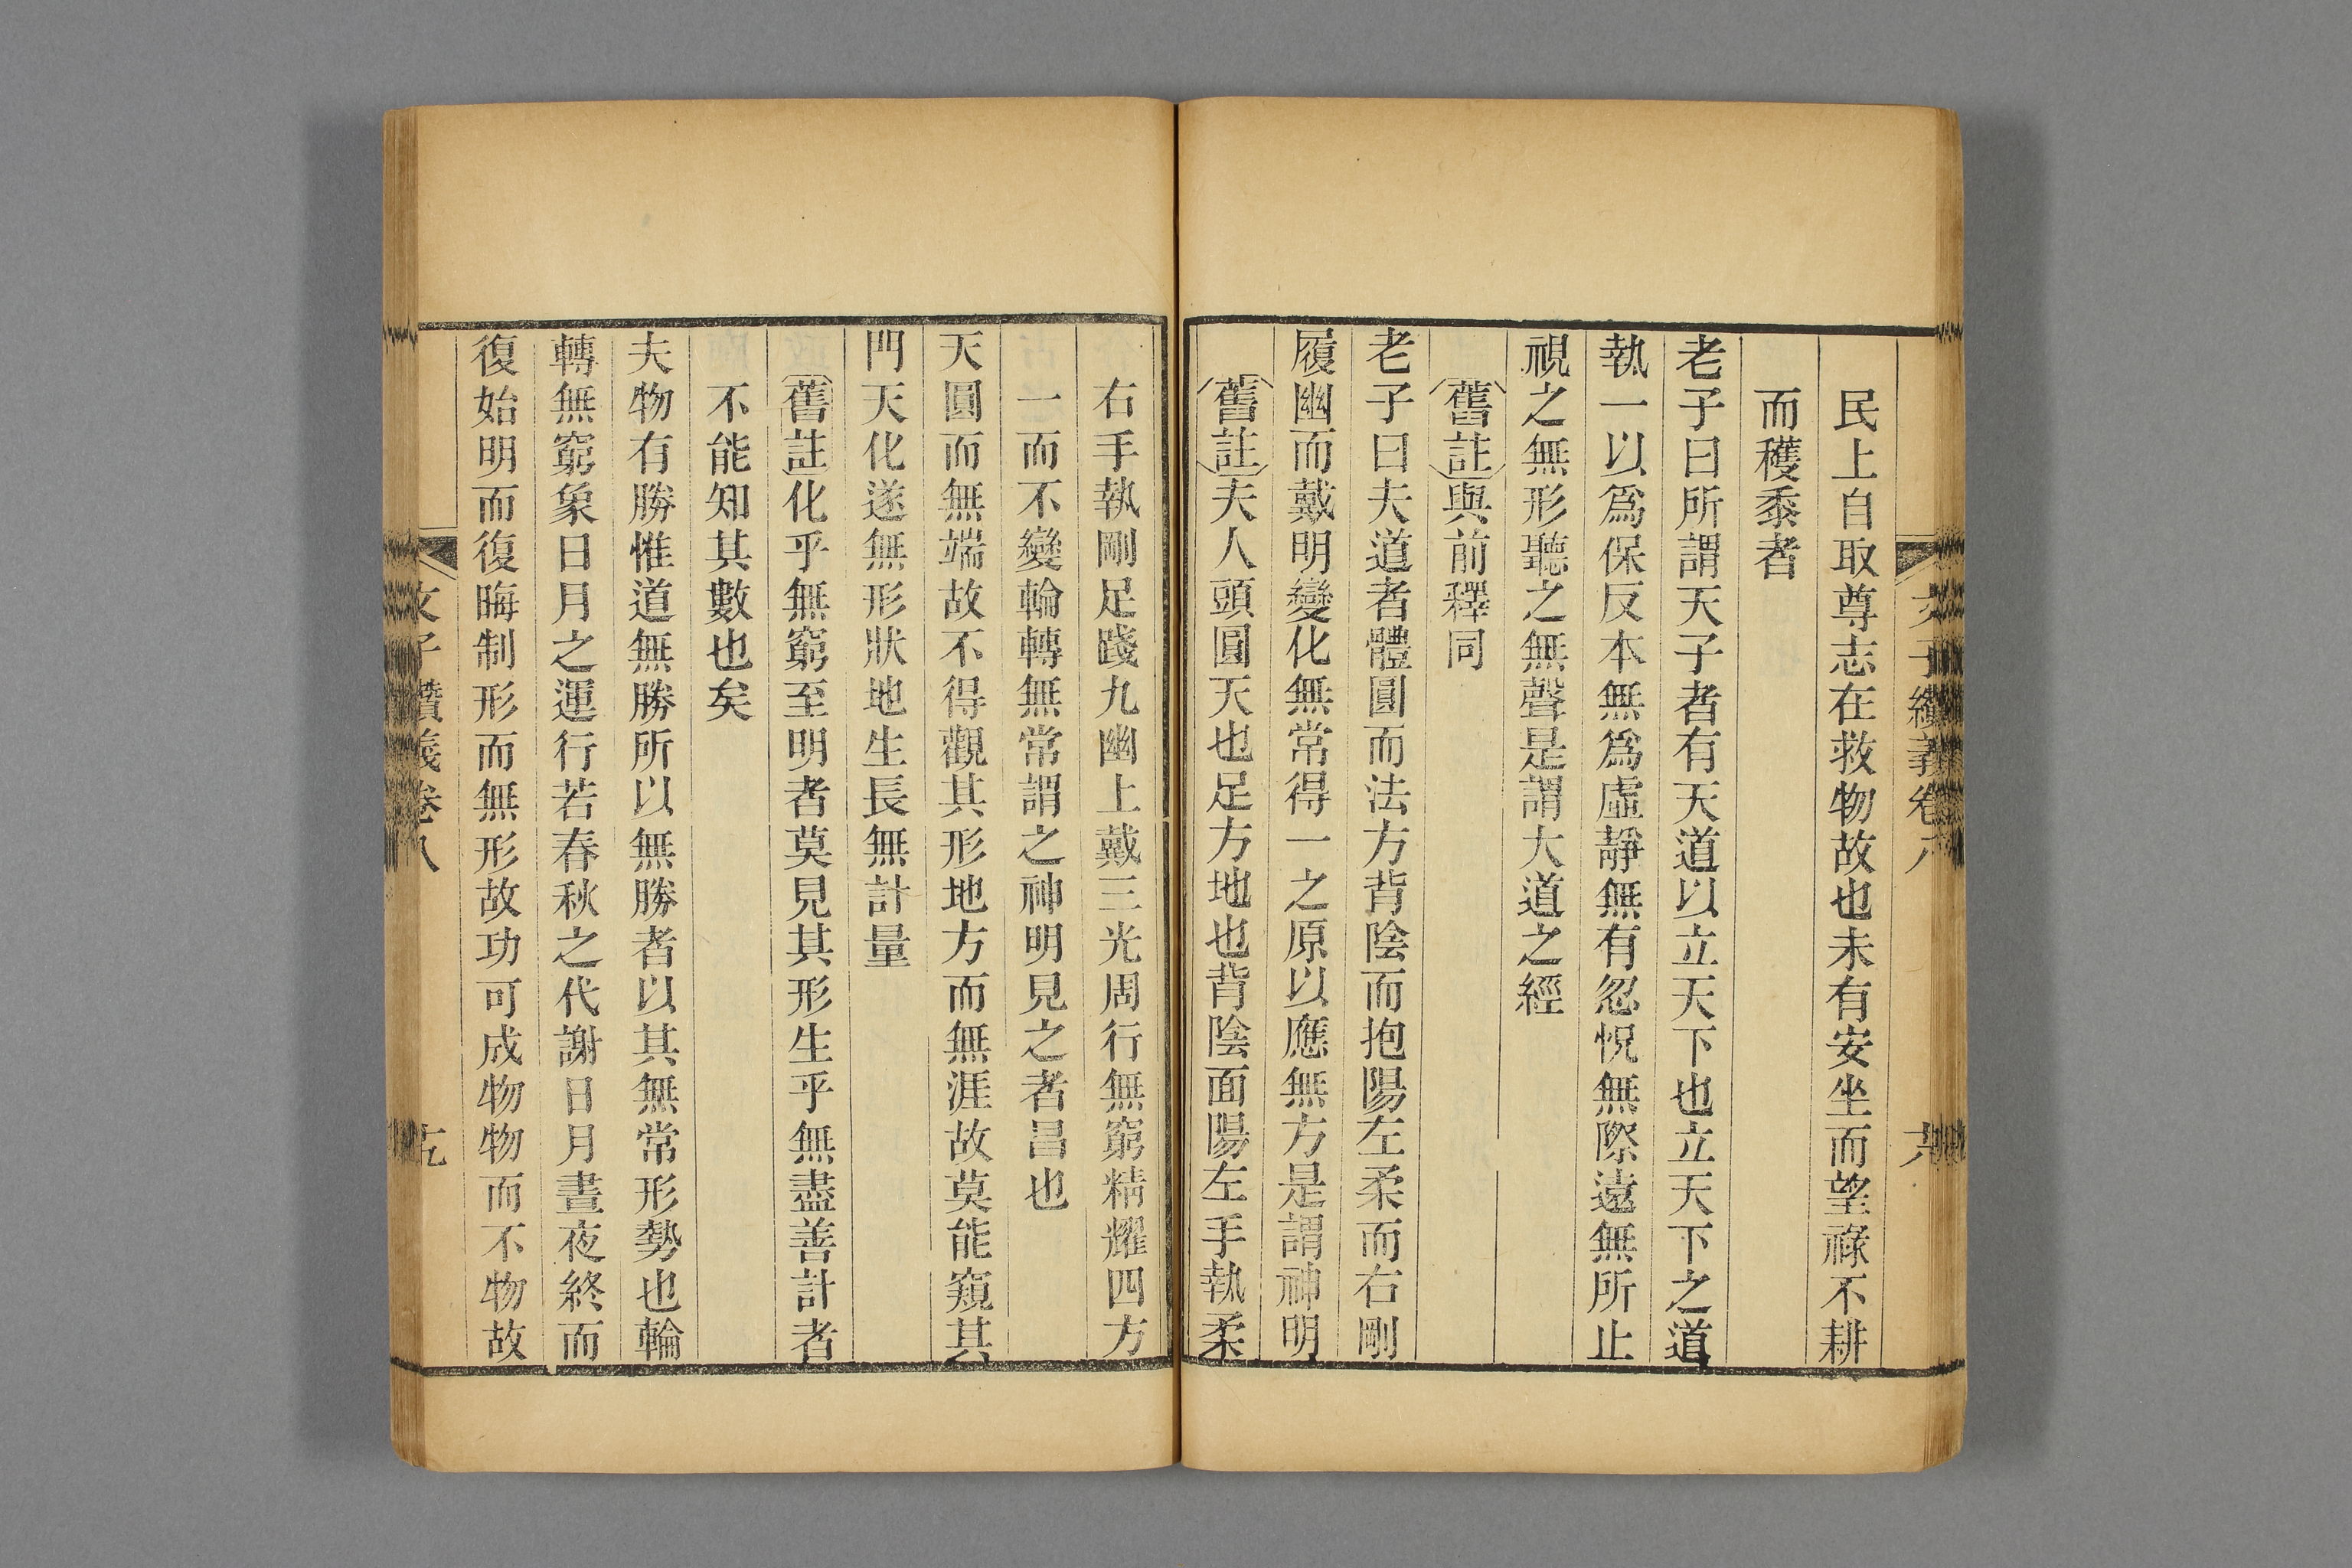 文子纘義卷八
六
民上自取尊志在救物故也未有安坐而望祿不耕
而穫黍者
老子曰所謂天子者有天道以立天下也立天下之道
執一以爲保反本無爲虛靜無有忽怳無際遠無所止
視之無形聽之無聲是謂大道之經
舊註與前釋同
老子曰夫道者體圓而法方背陰而抱陽左柔而右剛
履幽而戴明變化無常得一之原以應無方是謂神明
舊註夫人頭圓天也足方地也背陰面陽左手執柔
右手執剛足踐九幽上戴三光周行無窮精耀四方
一而不變輪轉無常謂之神明見之者昌也
天圓而無端故不得觀其形地方而無涯故莫能窺其
門天化遂無形狀地生長無計量
舊註化乎無窮至明者莫見其形生乎無盡善計者
不能知其數也矣
夫物有勝惟道無勝所以無勝者以其無常形勢也輪
轉無窮象日月之運行若春秋之代謝日月晝夜終而
復始明而復晦制形而無形故功可成物物而不物故
文子纘義卷八